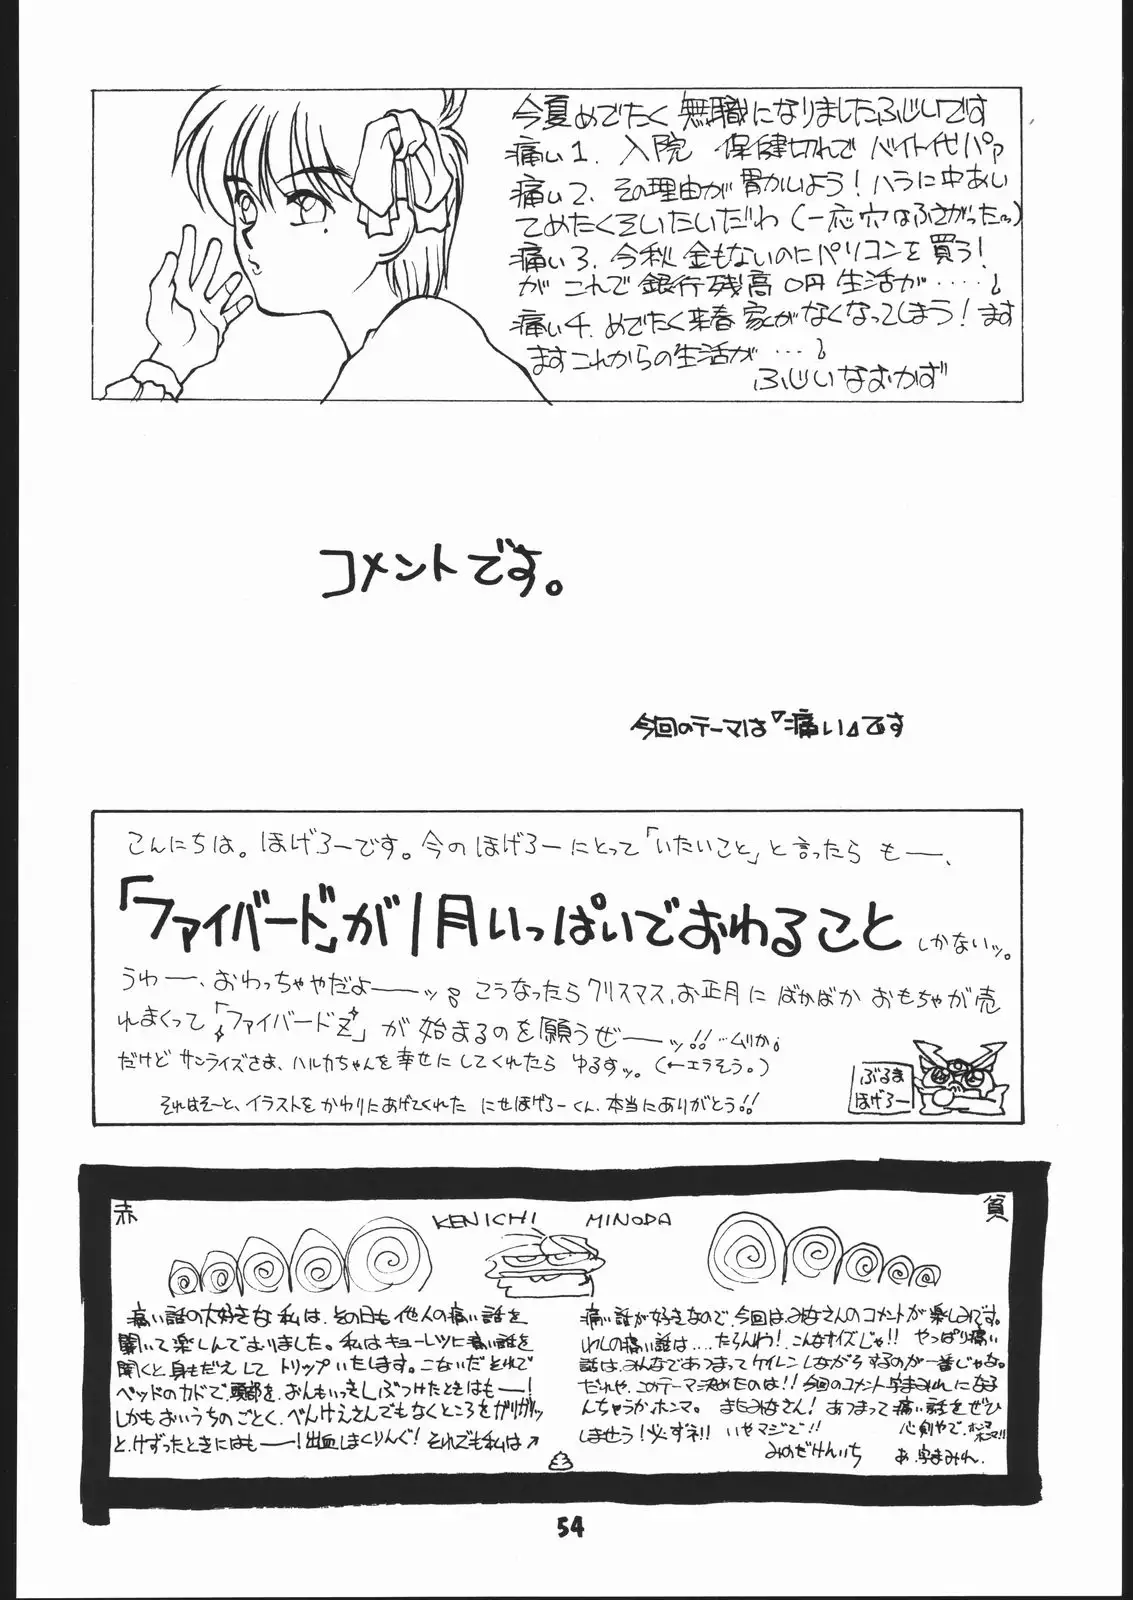 今夏めでたく無職になりましたふじいです
痛い1. 入院 保健切れで バイト代パァ
痛い2. その理由が胃かいよう！ハラに中あい
てめたくそいたいだわ (一応穴はふさがったっ)
痛い3. 今秋金もないのにパソコンを買う！
が これで銀行残高0円 生活が‥‥・
痛い4. めでたく来春家がなくなってしまう！ます
ますこれからの生活が…
ふじいなおかず
コメントです。
今回のテーマは『痛い』です
こんにちは。ほげろーです。今のほげろーにとって「いたいこと」と言ったら もー、
「ファイバード」が1月いっぱいでおわること しかないッ。
うわー、おわっちゃやだよーッ。こうなったらクリスマス、お正月にばかばかおもちゃが売
れまくって「ファイバードZ」が始まるのを願うぜーッ!! …ムリか。
だけどサンライズさま、ハルカちゃんを幸せにしてくれたらゆるすッ。(←エラそう。)
それはそーと、イラストをかわりにあげてくれた にせほげろーくん、本当にありがとう!!
ぶるま
ほげろー
赤
KENICHI MINODA
貧
痛い話の大好きな私は、その日も他人の痛い話を
聞いて楽しんでおりました。私はキョーレツに痛い話を
聞くと、身もだえしてトリップいたします。こないだそれで
ベッドのカドで、頭部を、おんもいっきしぶつけたときはもー！
しかもおいうちのごとく、べんけえさんでもなくところをガリガリッ
と、けずったときにはもー！出血しまくりんぐ！それでも私は
痛い話が好きなので、今回はみなさんのコメントが楽しみです。
わしの痛い話は…たらんわ！こんなサイズじゃ!! やっぱり痛い
話は、みんなであつまってケイレンしながらするのが一番じゃな。
だれや、このテーマ決めたのは!! 今回のコメント字まみれになる
んちゃうか、ホンマ。またみなさん！あつまって痛い話をぜひ
しませう！必ずネ!! いやマジで!!
心剣やで、ホンマホンマ!!
みのだけんいち
あ、字まみれ。
54